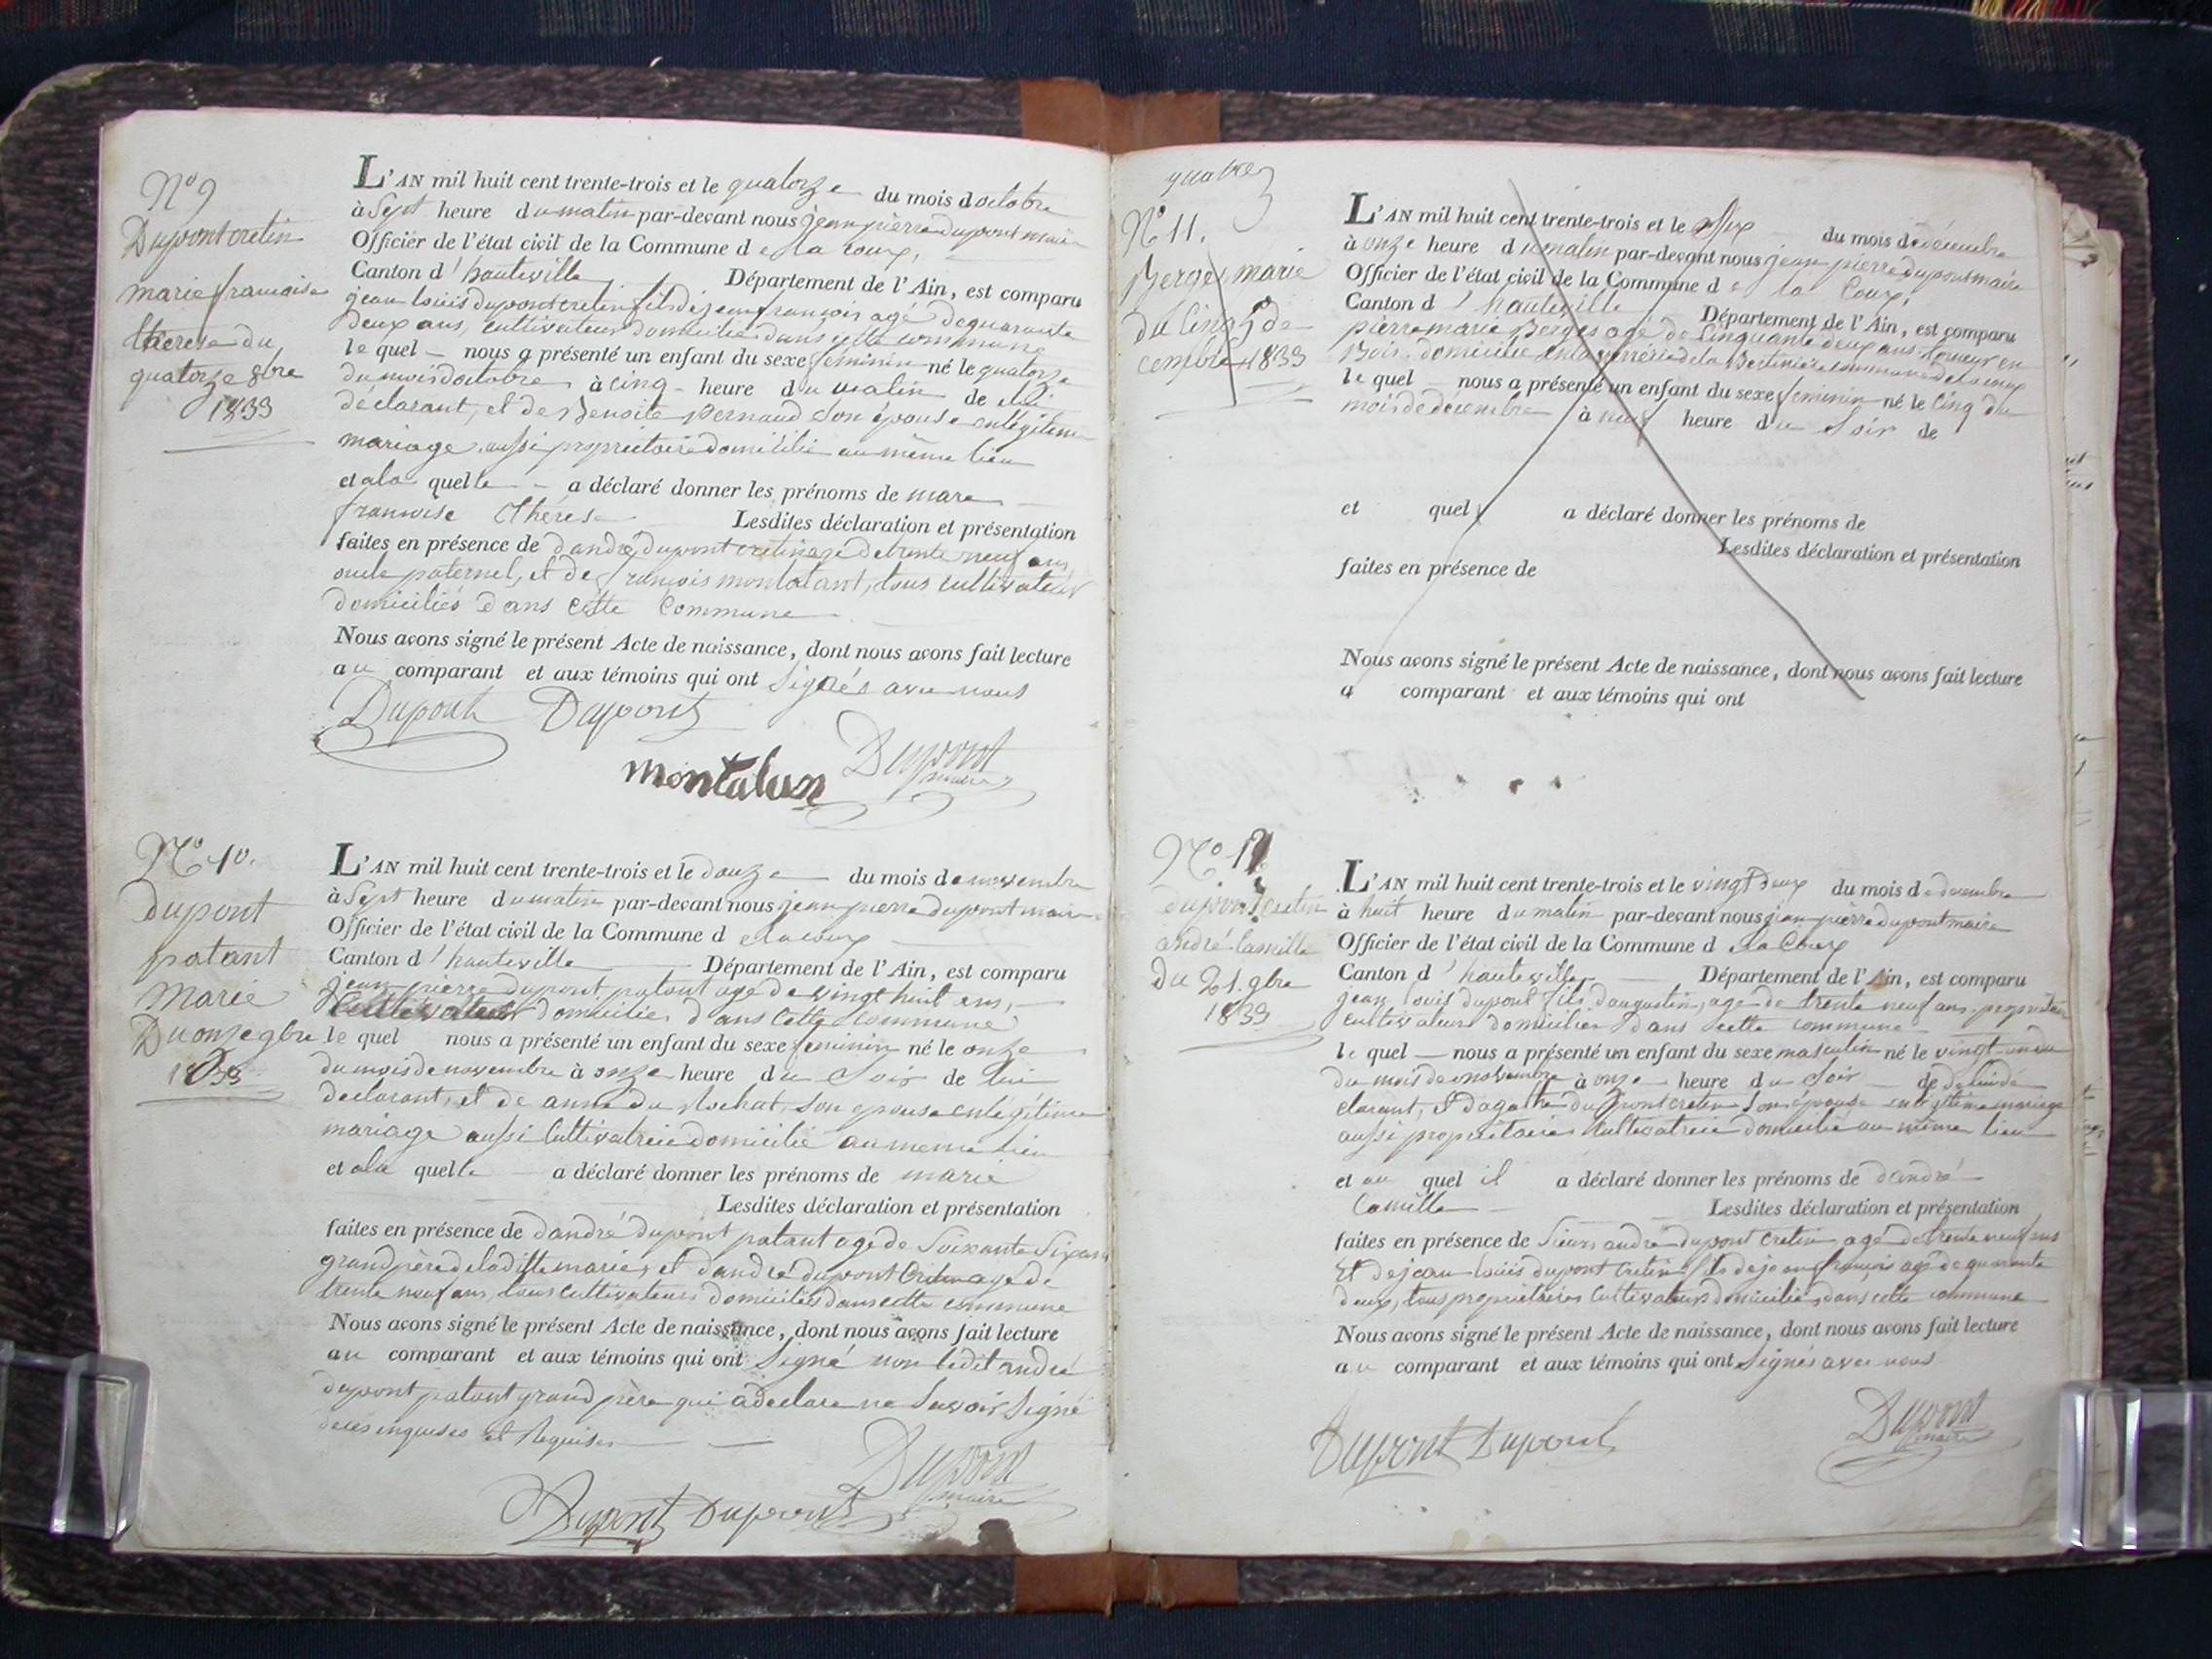 N° 9
Dupont cretin
marie francoise
therese du
quatorze 8bre
1833
L'AN mil huit cent trente-trois et le quatorze du mois d octobre
à Sept heure du matin par-devant nous jean pierre dupont maire
Officier de l'état civil de la Commune d e la Coux,
Canton d'hauteville Département de l'Ain, est comparu
jean louis dupont cretin fils de jean francois agé de quarante
deux ans, cultivateur domicilié dans cette commune
le quel nous a présenté un enfant du sexe feminin né le quatorze
du mois doctobre à cinq heure du matin de lui
déclarant, et de Benoite Pernaud son épouse enlégitime
mariage, aussi propriétaire domicilié au même lieu
et a la quelle a déclaré donner les prénoms de mare
francoise thérèse Lesdites déclaration et présentation
faites en présence de dandré dupont cretin agé de trente neuf ans
oncle paternel, et de francois montalant, tous cultivateur
domiciliés dans cette Commune
Nous avons signé le présent Acte de naissance, dont nous avons fait lecture
au comparant et aux témoins qui ont Signés avec nous
Dupont Dupont
montalun Dupont
maire
N° 10.
Dupont
patant
Marie
Du onze 9bre
1833
L'AN mil huit cent trente-trois et le douze du mois de novembre
à Sept heure du matin par-devant nous jean pierre dupont maire
Officier de l'état civil de la Commune d e la coux
Canton d'hauteville Département de l'Ain, est comparu
jean pierre dupont patant agé de vingt huit ans,
Cultivateur domicilié dans cette commune
le quel nous a présenté un enfant du sexe feminin né le onze
du mois de novembre à onze heure du Soir de lui
déclarant, et de anne du Rochat, son epouse enlégitime
mariage aussi Cultivatrice domicilié au meme lieu
et a la quelle a déclaré donner les prénoms de marie
Lesdites déclaration et présentation
faites en présence de dandré dupont patant agé de Soixante Six ans
grand père de laditte marie, et dandré dupont Cretin agé de
trente neuf ans, tous cultivateurs domiciliés dans cette commune
Nous avons signé le présent Acte de naissance, dont nous avons fait lecture
au comparant et aux témoins qui ont Signé non ledit andré
dupont patant grand père qui a déclare ne Savoir Signé
de ces enquises et Requises
Dupont
maire
Dupont Dupont
quatre
N° 11.
Berges marie
du Cinq de
cembre 1833
L'AN mil huit cent trente-trois et le Six du mois de décembre
à onze heure du matin par-devant nous jean pierre dupont maire
Officier de l'état civil de la Commune d e la Coux,
Canton d'hauteville Département de l'Ain, est comparu
pierre marie Berges agé de Cinquante deux ans
Bois domicilié commune de la coux
le quel nous a présenté un enfant du sexe feminin né le Cinq du
mois de décembre à neuf heure du Soir de
et quel a déclaré donner les prénoms de
Lesdites déclaration et présentation
faites en présence de
Nous avons signé le présent Acte de naissance, dont nous avons fait lecture
a comparant et aux témoins qui ont
N°
dupont cretin
andré Camille
Du 21. 9bre
1833
L'AN mil huit cent trente-trois et le vingt deux du mois de decembre
à huit heure du matin par-devant nous jean pierre dupont maire
Officier de l'état civil de la Commune d e la Coux
Canton d'hauteville Département de l'Ain, est comparu
jean louis dupont fils d'augustin, agé de trente neuf ans, propriétaire
cultivateur domicilier dans cette commune
le quel nous a présenté un enfant du sexe masculin né le vingt un du
du mois de novembre à onze heure du Soir de de lui dé
clarant, et dagathe dupont cretin Son épouse en légitime mariage
aussi propriétaire Cultivatrice domicilié au même lieu
et au quel il a déclaré donner les prénoms de dandré
Camille Lesdites déclaration et présentation
faites en présence de Sieurs andré dupont cretin agé de trente neuf ans
Et de jean louis dupont Cretin fils de jean francois agé de quarante
deux, tous propriétaires Cultivateurs domiciliés dans cette commune
Nous avons signé le présent Acte de naissance, dont nous avons fait lecture
au comparant et aux témoins qui ont Signés avec nous
Dupont Dupont
Dupont
maire